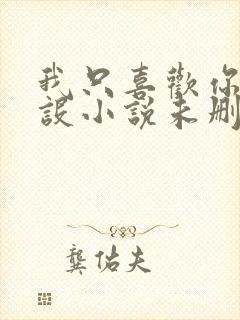 我只喜歡你
設小說未刪
龔佑夫